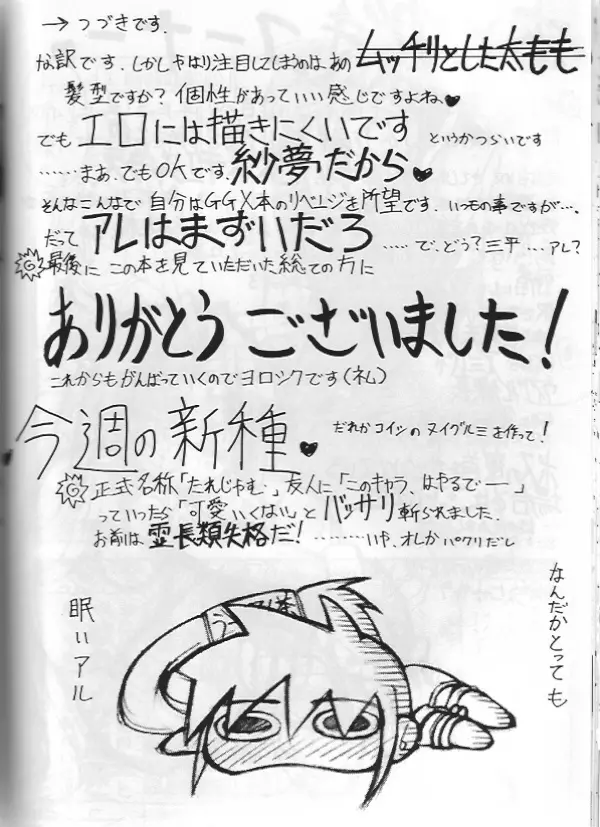 →つづきです.
な訳です.しかしやはり注目してしまうのは、あのムッチリとした太もも
髪型ですか?個性があっていい感じですよね、♥
でもエロには描きにくいです というかつらいです
……まあ、でもOKです、紗夢だから♥
そんなこんなで自分はGGX本のリベンジを所望です.いつもの事ですが….
だってアレはまずいだろ ……で、どう?三平…アレ?
最後に この本を見ていただいた総ての方に
ありがとうございました!
これからもがんばっていくのでヨロシクです(礼)
今週の新種♥ だれかコイツのヌイグルミを作って!
正式名称「たれじゃむ・」友人に「このキャラ、はやるでー」
っていったら「可愛いくない」とバッサリ斬られました.
お前は霊長類失格だ!………いや、オレがパクリだし
なんだかとっても
眠いアル